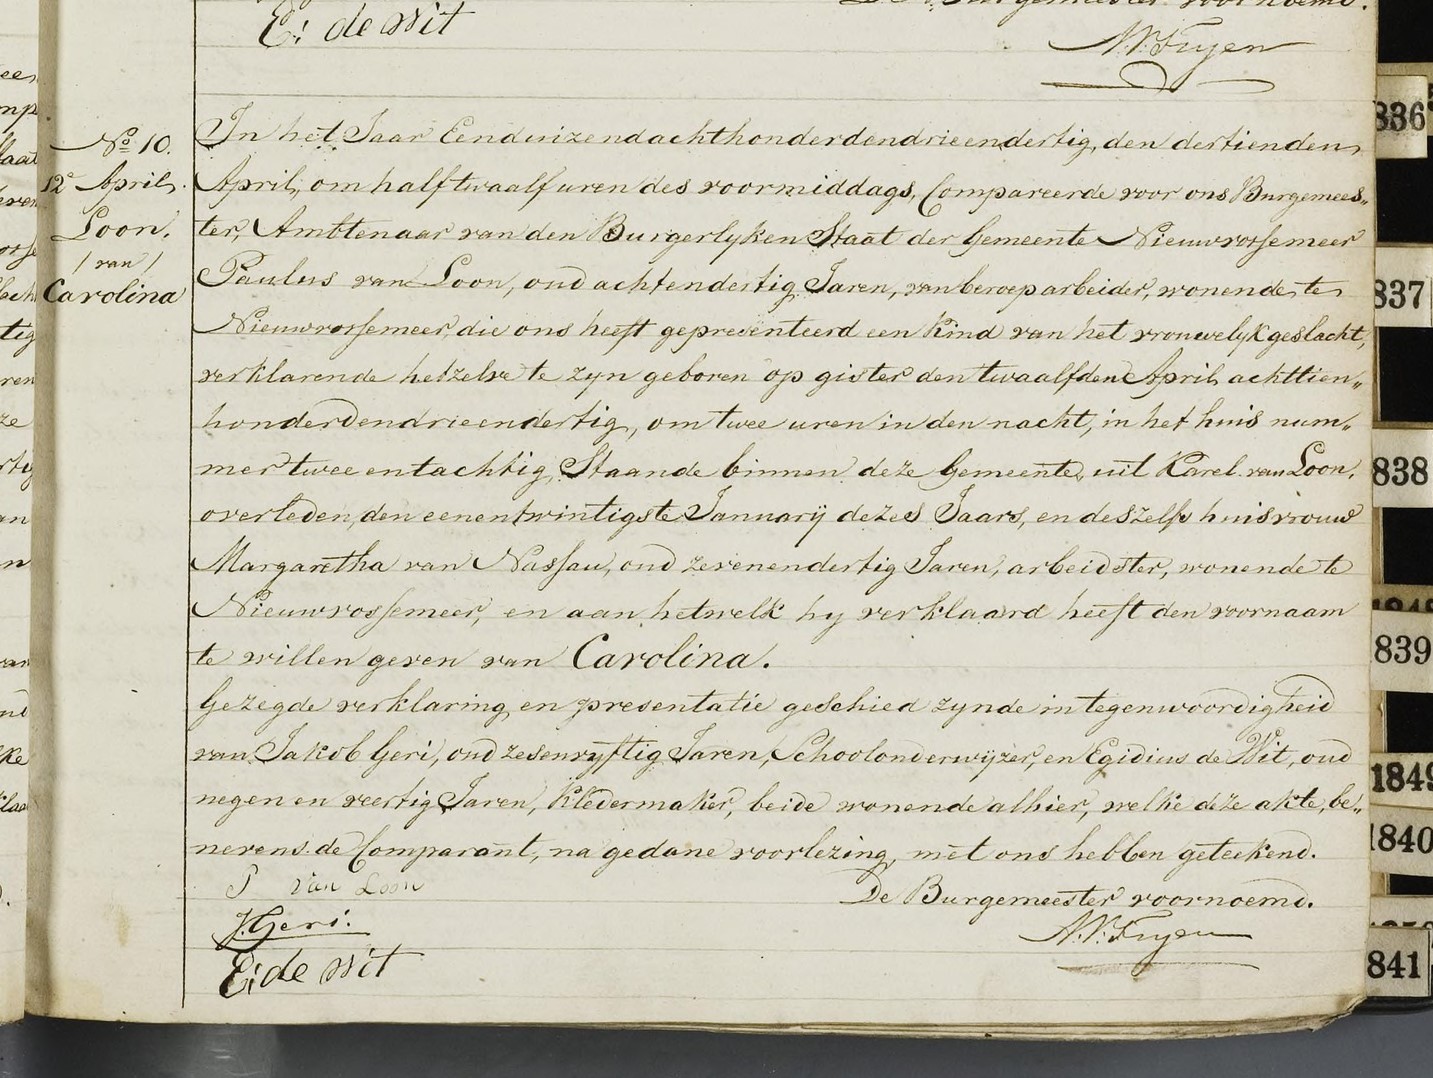 E: de Wit
No 10.
12e April.
Loon.
/ van /
Carolina
In het Jaar Eenduizendachthonderdendrieendertig, den dertienden
April, om half twaalf uren des voormiddags, Compareerde voor ons Burgemees„
ter, Ambtenaar van den Burgerlyken Staat der Gemeente Nieuwvossemeer
Paulus van Loon, oud achtendertig Jaren, van beroep arbeider, wonende te
Nieuwvossemeer, die ons heeft gepresenteerd een Kind van het vrouwelyk geslacht,
verklarende hetzelve te zyn geboren op gister den twaalfden April achttien„
honderdendrieendertig, om twee uren in den nacht, in het huis num„
mer twee en tachtig, Staande binnen deze Gemeente, uit Karel van Loon,
overleden, den eenentwintigste Januarij dezes Jaars, en deszelfs huisvrouw
Margaretha van Nassau, oud zevenendertig Jaren, arbeidster, wonende te
Nieuwvossemeer, en aan hetwelk hy verklaard heeft den voornaam
te willen geven van Carolina.
Gezegde verklaring en presentatie geschied zynde in tegenwoordigheid
van Jakob Geri, oud zesenvyftig Jaren, Schoolonderwijzer, en Egidius de Wit, oud
negen en veertig Jaren, Kledermaker, beide wonende alhier, welke deze akte, be„
nevens de Comparant, na gedane voorlezing, met ons hebben geteekend.
P van Loon
De Burgemeester voornoemd.
J. Geri.
E: de Wit
836
837
838
839
1849
1840
841